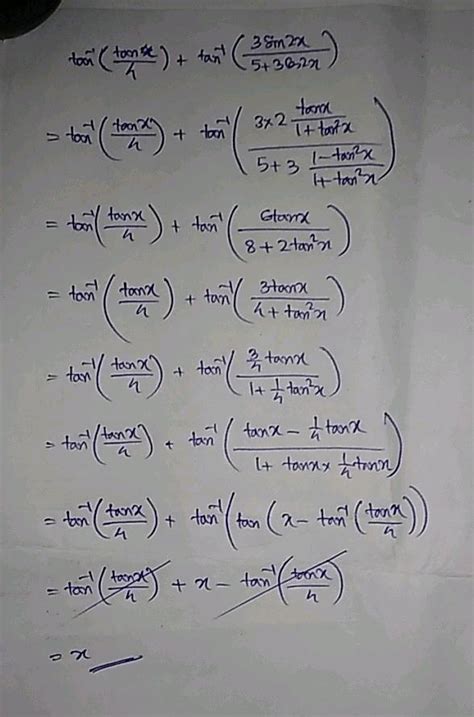 tan⁻¹(tanx/4) + tan⁻¹(3Sin2x/5+3Cos2x)
= tan⁻¹(tanx/4) + tan⁻¹(3×2 tanx/1+tan²x / 5+3 1-tan²x/1+tan²x)
= tan⁻¹(tanx/4) + tan⁻¹(6tanx/8+2tan²x)
= tan⁻¹(tanx/4) + tan⁻¹(3tanx/4+tan²x)
= tan⁻¹(tanx/4) + tan⁻¹(3/4 tanx/1+1/4 tan²x)
= tan⁻¹(tanx/4) + tan⁻¹(tanx - 1/4 tanx/1+ tanx× 1/4 tanx)
= tan⁻¹(tanx/4) + tan⁻¹(tan(x - tan⁻¹(tanx/4)))
= tan⁻¹(tanx/4) + x - tan⁻¹(tanx/4)
= x